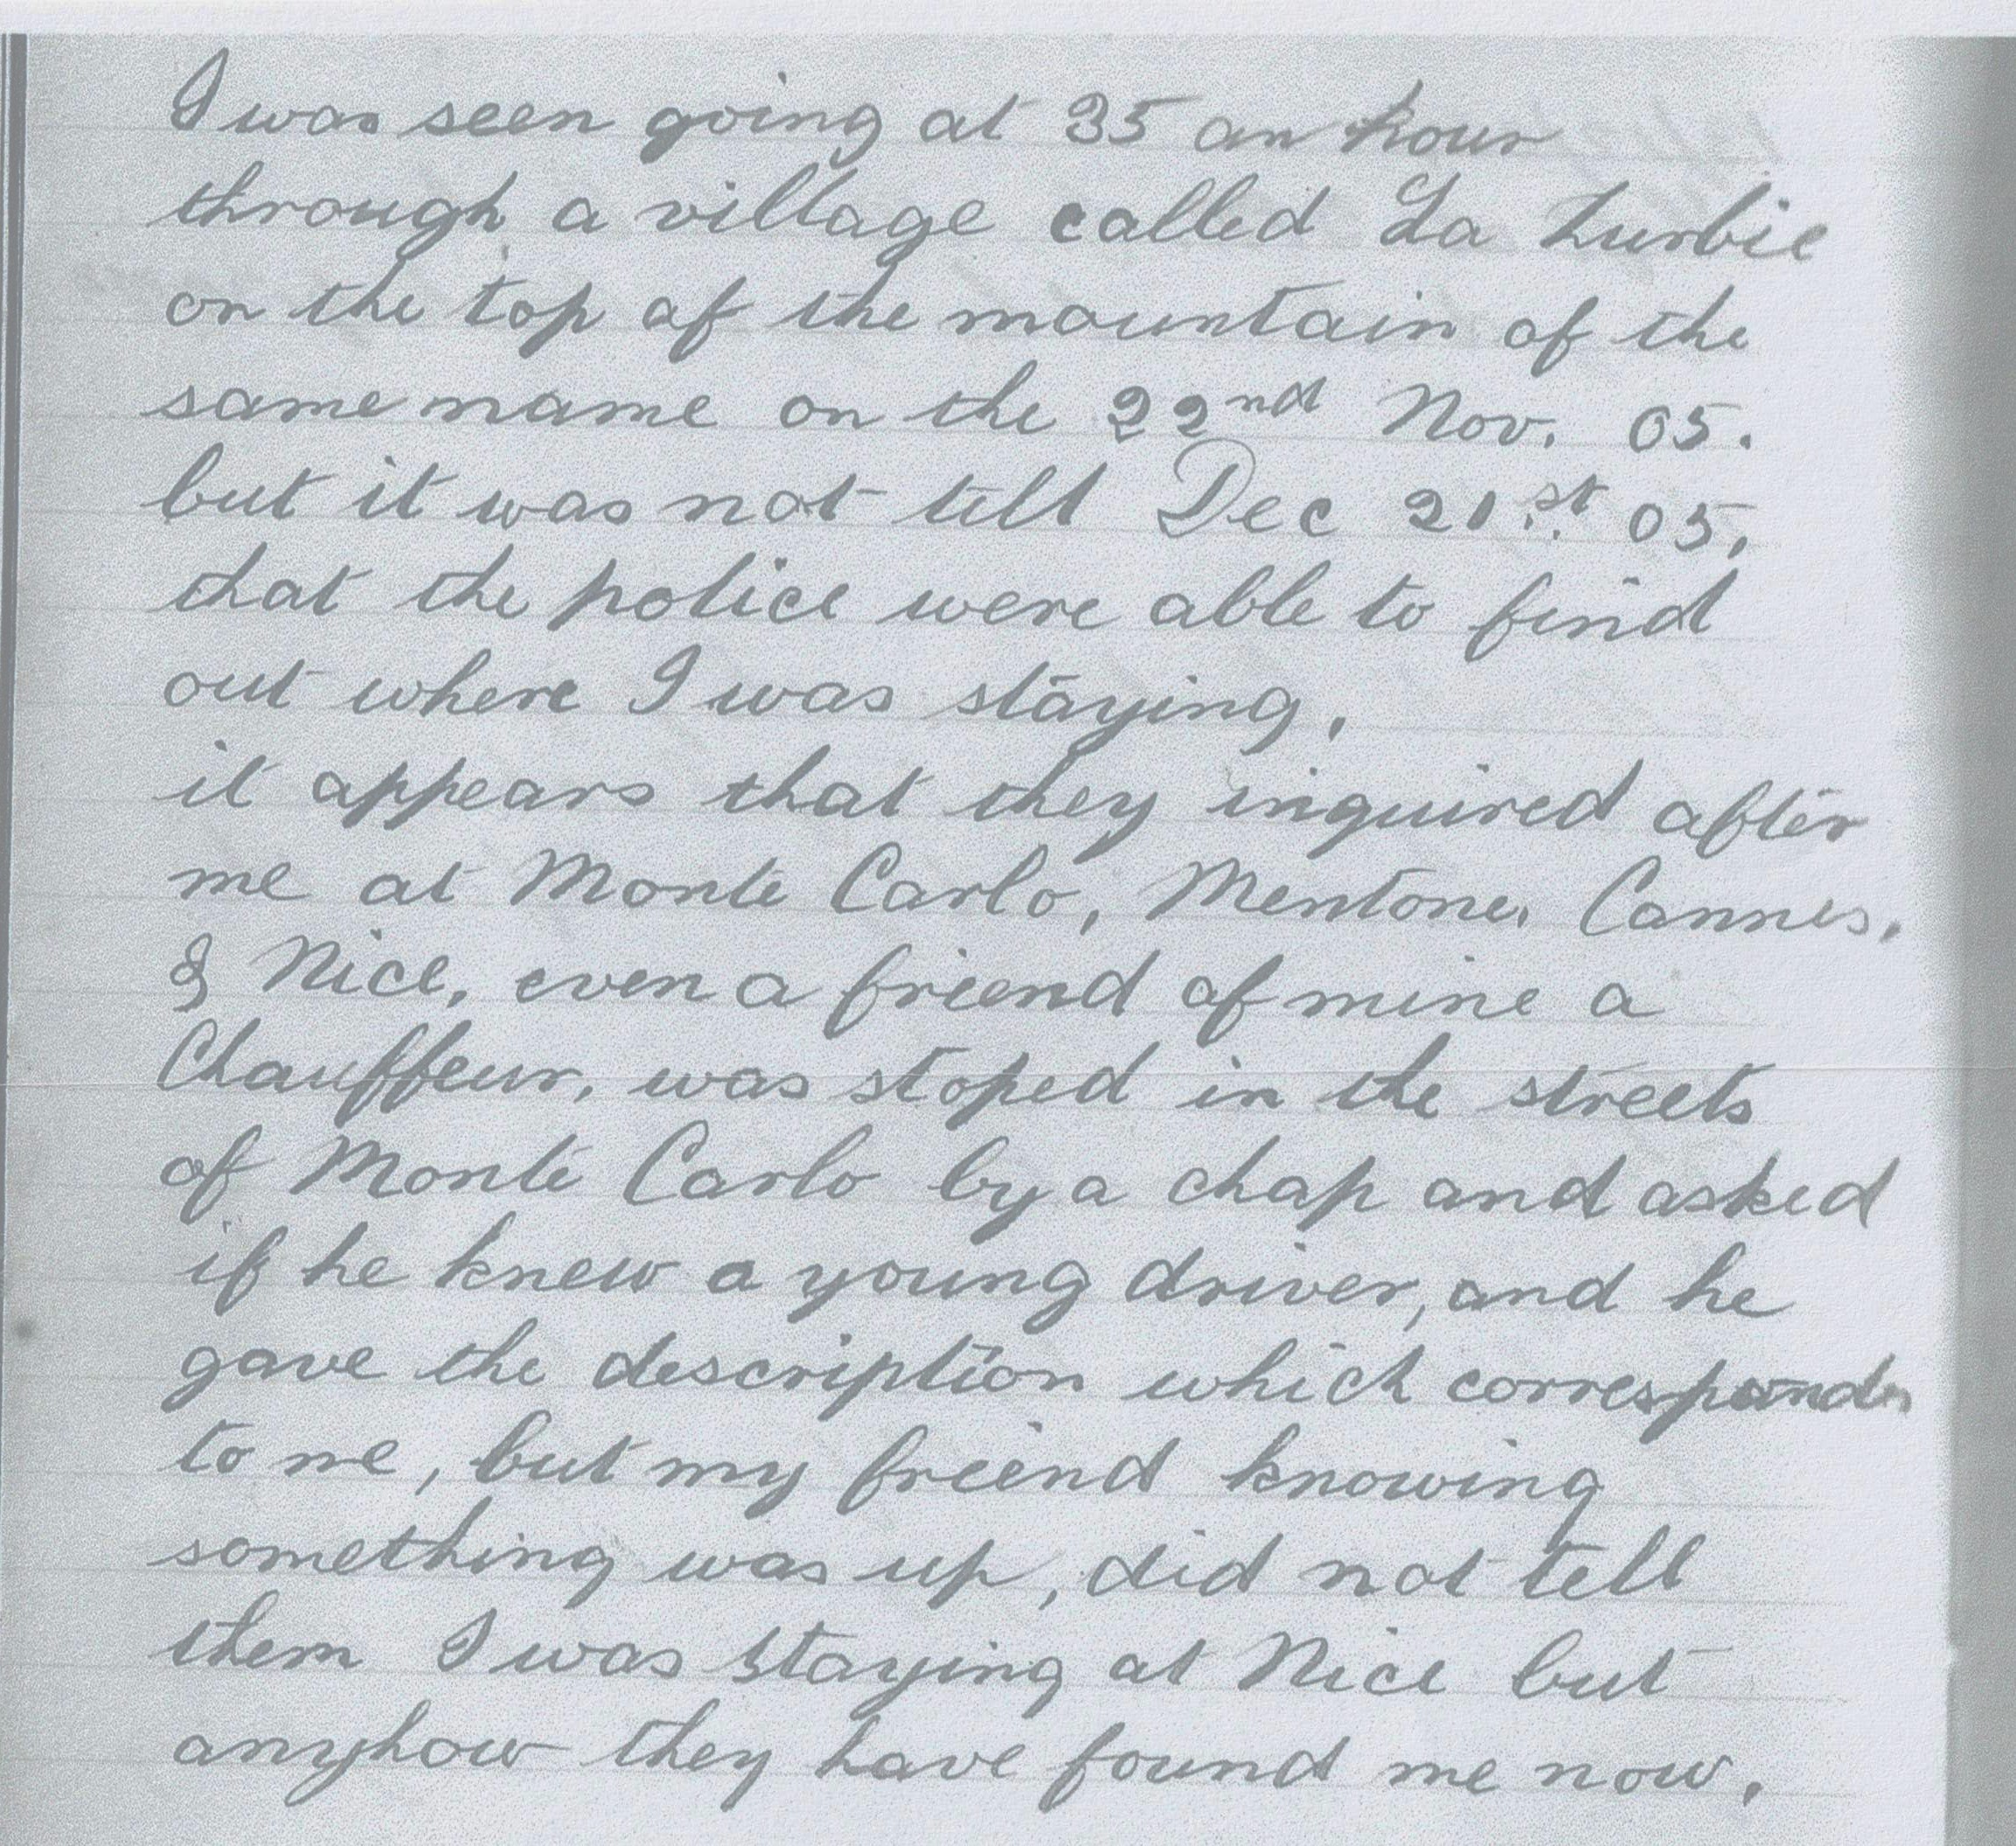 I was seen going at 35 an hour
through a village called La Turbie
on the top of the mountain of the
same name on the 22nd Nov. 05.
but it was not till Dec 21st. 05,
that the police were able to find
out where I was staying.
it appears that they inquired after
me at Monte Carlo, Mentone, Cannes,
& Nice, even a friend of mine a
Chauffeur, was stoped in the streets
of Monte Carlo by a chap and asked
if he knew a young driver, and he
gave the description which corresponds
to me, but my friend knowing
something was up, did not tell
them I was staying at Nice but
anyhow they have found me now.